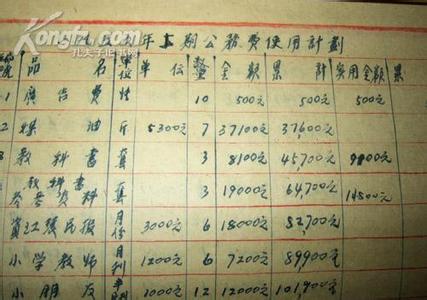 Kongfz.com
孔夫子旧书网
年上期公務費使用計劃
品名 單位 單位 數量 金額 累計 實用金額 累
1 廣告費 10 500元 500元 500元
2 煤油 斤 5300元 7 37100元 37,600元
3 教科書 套 3 8100元 45,700元
教科書
参考資料 套 3 19000元 64,700元 14500元
資江農民报 月份 3000元 6 18000元 82,700元
小学教师 月刊 1200元 6 7200元 89,900元
小朋友 半刊 1000元 12 12000元 101,900元